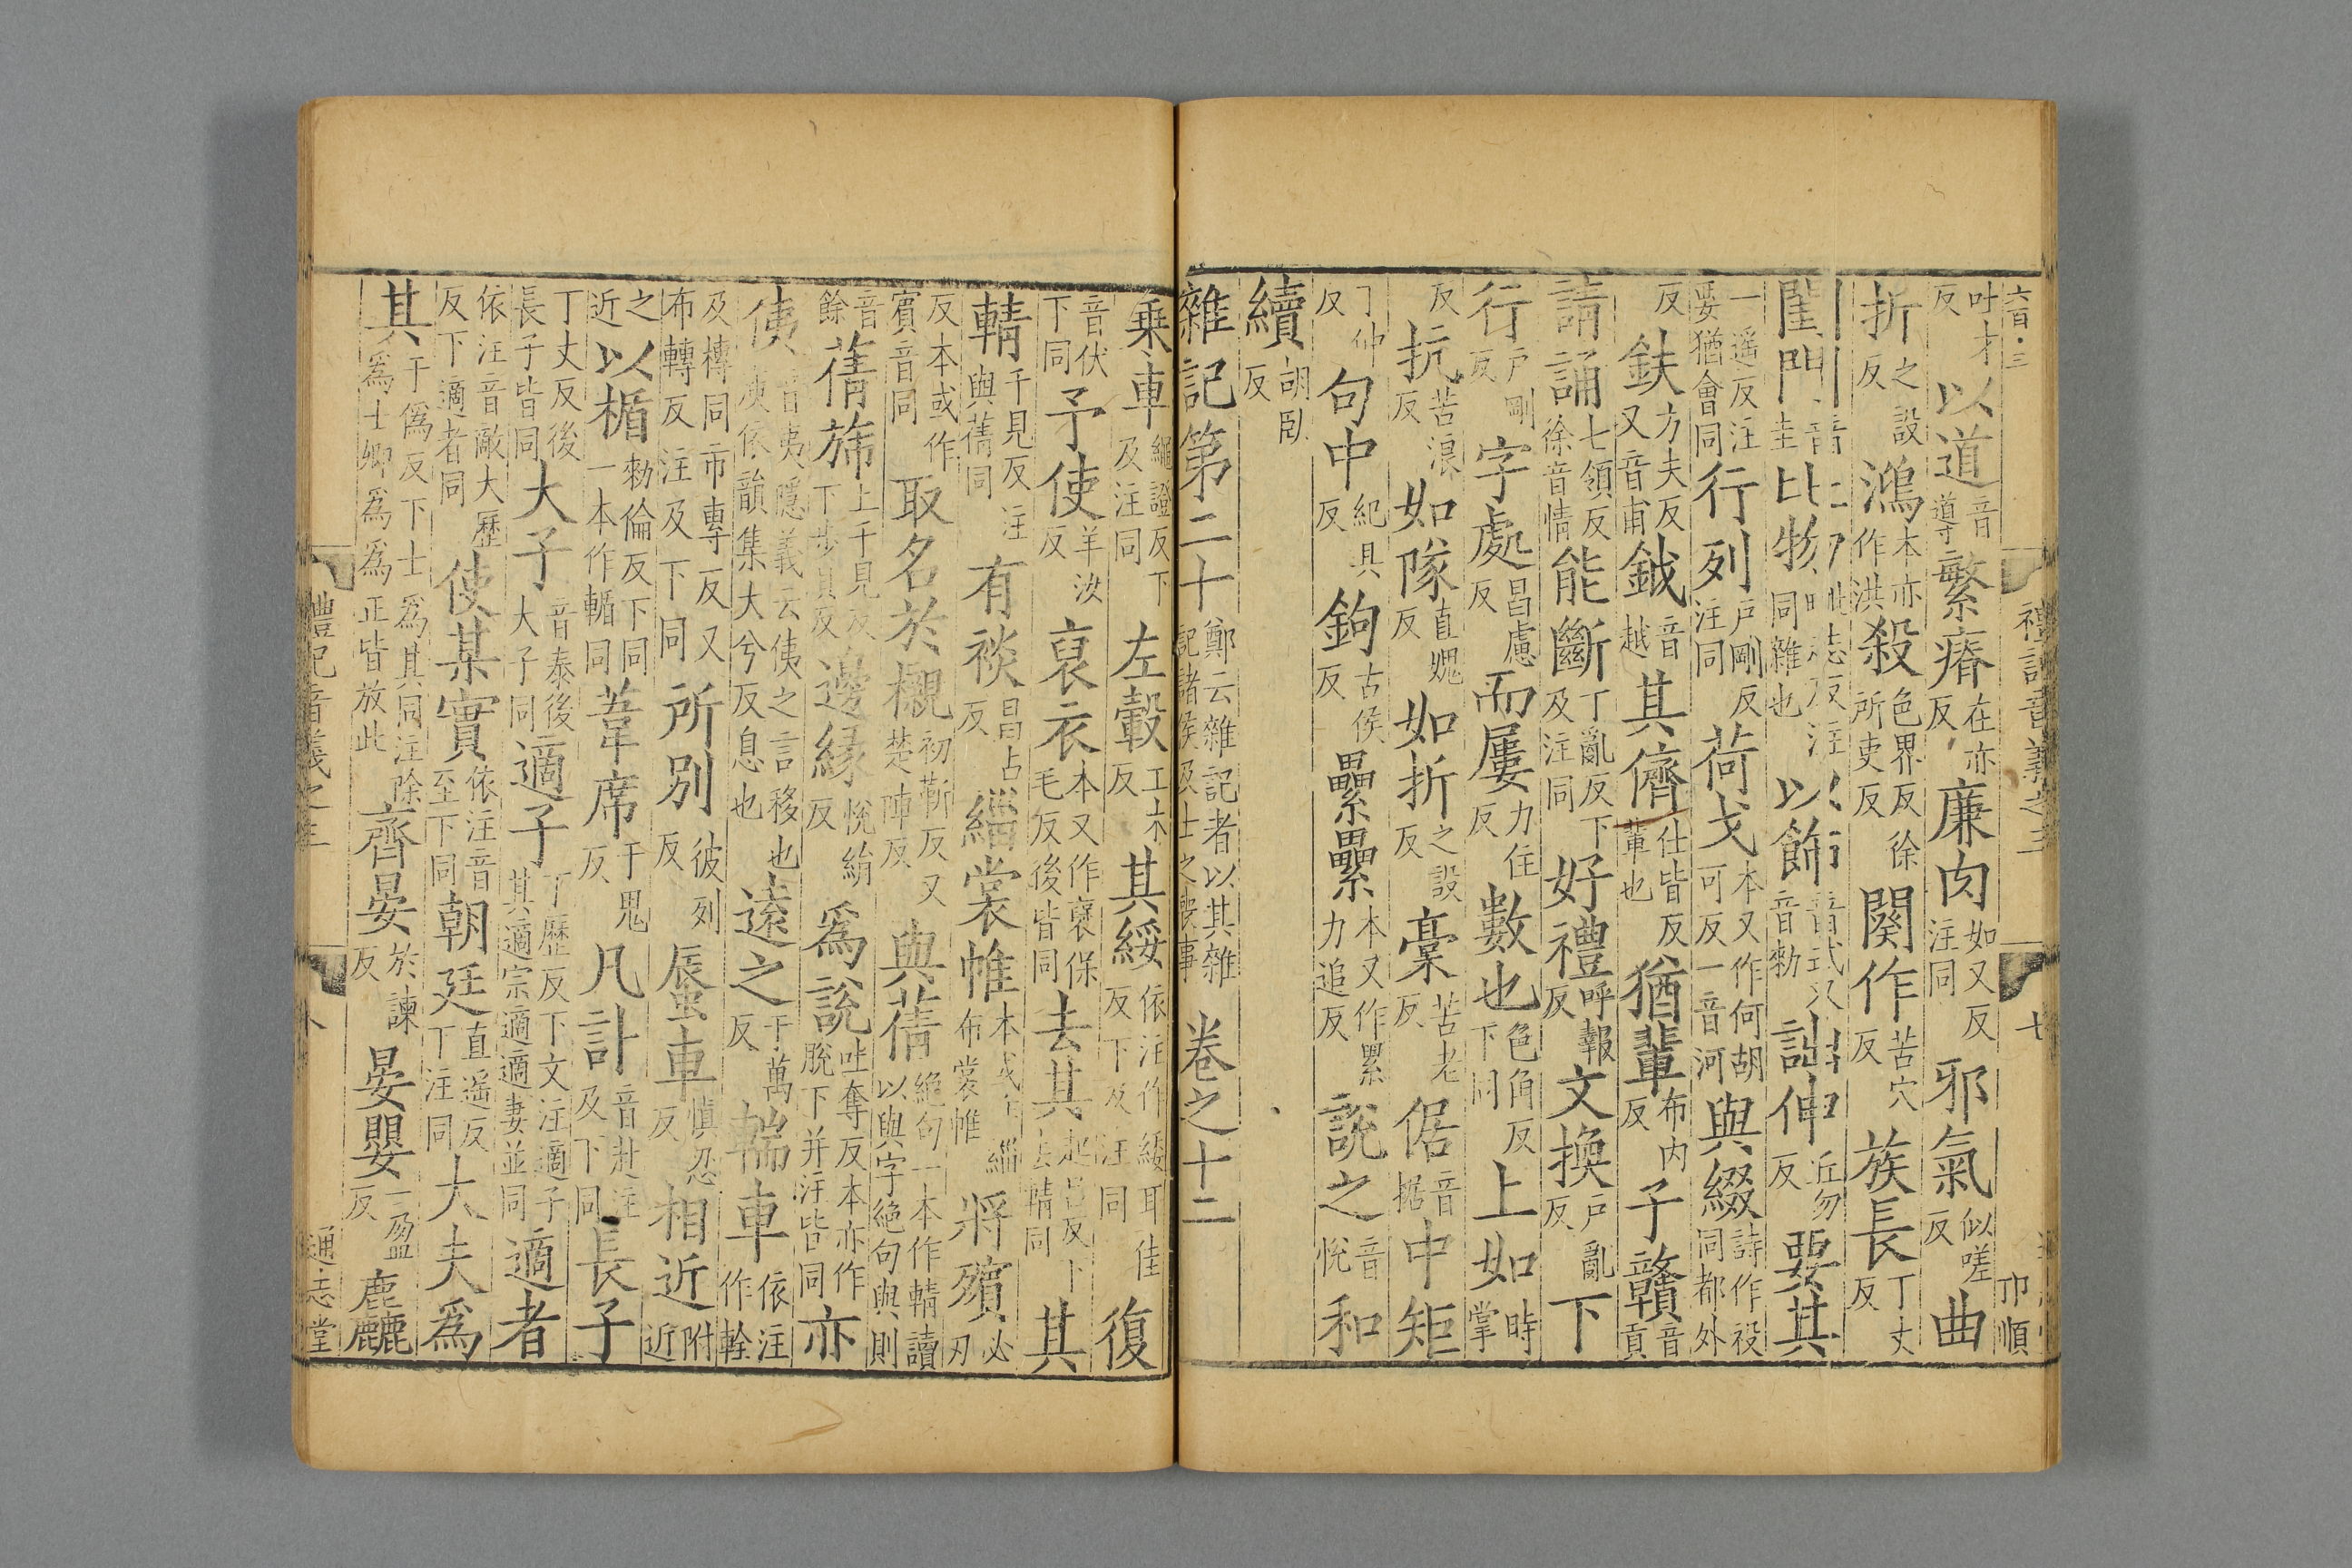 六百·三 禮記音義之三 七 邛順
吐才反 以道音導 繁瘠在亦反 廉肉如又反注同 邪氣似嗟反 曲
折之設反 鴻本亦作洪 殺色界反徐所吏反 闋作苦穴反 族長丁丈反
閨門音圭 比物同雜也 以飾音式又音勑 詘伸丘勿反 要其
一遥反注要猶會同 行列戶剛反注同 荷戈本又作何胡可反一音河 與綴詩作祋同都外
反 鈇方夫反又音甫 鉞音越 其儕仕皆反輩也 猶輩布内反 子贛音貢
請誦七領反徐音情 能斷丁亂反下及注同 好禮呼報反 文換戶亂反 下
行戶剛反 字處昌慮反 而屢力住反 數也色角反下同 上如時掌
反 抗苦浪反 如隊直媿反 如折之設反 槀苦老反 倨音据 中矩
丁仲反 句中紀具反 鉤古侯反 纍纍本又作累力追反 說之音悅 和
續胡臥反
雜記第二十鄭云雜記者以其雜記諸侯及士之喪事 卷之十二
乗車繩證反下及注同 左轂工木反 其綏依注作緌耳佳反下及注同 復
音伏下同 予使羊汝反 裒衣本又作襃保毛反後皆同 去其起吕反下去輤同 其
輤千見反注與蒨同 有裧昌占反 緇裳帷本或作緇布裳帷 將殯必刃
反本或作賓音同 取名於櫬初靳反又楚陣反 與蒨絶句一本作輤讀以與字絶句與則
音餘 蒨斾上千見反下步貝反 邊縁悅絹反 爲說吐奪反本亦作脫下并注皆同 亦
侇音夷隱義云侇之言移也庾依韻集大兮反息也 遠之于萬反 輲車依注作輇
及槫同市專反又布轉反注及下同 所別彼列反 蜃車慎忍反 相近附近
之近 以楯勑倫反下同一本作輴同 葦席于鬼反 凡計音赴注及下同 長子
丁丈反後長子皆同 大子音泰後大子同 適子丁歷反下文注適子其適宗適適妻並同 適者
依注音敵大歷反下適者同 使某實依注音至下同 朝廷直遥反丁注同 大夫爲
其于僞反下士爲其同注除爲士卿爲爲正皆放此 齊晏於諫反 晏嬰一盈反 麤
禮記音義之三 通志堂